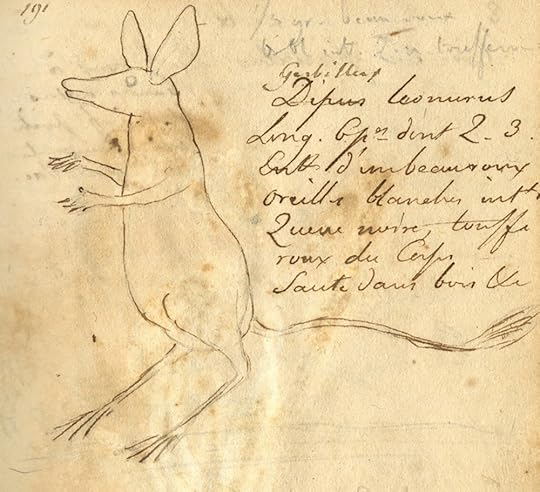 191
beau roux
Gerbillus
Dipus leonurus
Long. 6 pes dont 2-3.
Entt d'un beau roux
oreilles blanches intt
Queue noire, touffe
roux du Corps
Saute dans bois &c